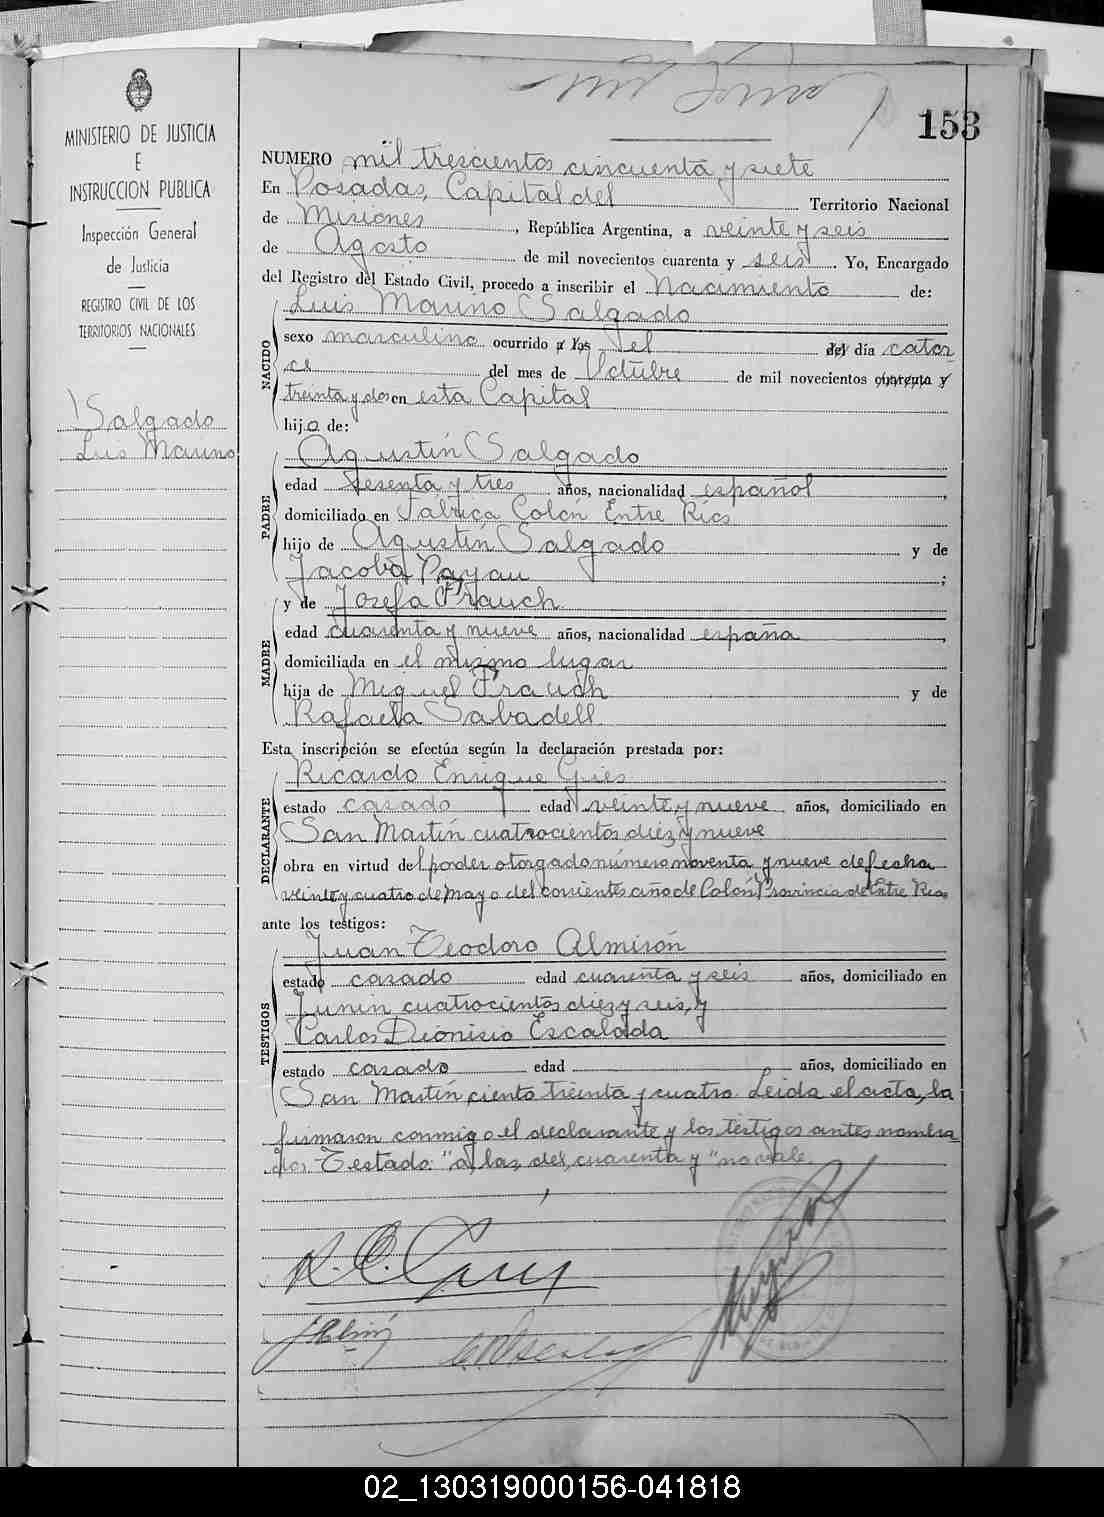 153
MINISTERIO DE JUSTICIA
E
INSTRUCCION PUBLICA
Inspección General
de Justicia
REGISTRO CIVIL DE LOS
TERRITORIOS NACIONALES
Salgado
Luis Marino
NUMERO mil trescientos cincuenta y siete
En Posadas, Capital del Territorio Nacional
de Misiones, República Argentina, a veinte y seis
de Agosto de mil novecientos cuarenta y seis. Yo, Encargado
del Registro del Estado Civil, procedo a inscribir el Nacimiento de:
NACIDO
Luis Marino Salgado
sexo masculino ocurrido a las el del día cator
ce del mes de Octubre de mil novecientos cuarenta y
treinta y dos en esta Capital
hijo de:
PADRE
Agustín Salgado
edad sesenta y tres años, nacionalidad español,
domiciliado en Fabrica Colón Entre Ríos
hijo de Agustín Salgado y de
Jacoba Payau;
MADRE
y de Josefa Frauch
edad cuarenta y nueve años, nacionalidad españa,
domiciliada en el mismo lugar
hija de Miguel Frauch y de
Rafaela Sabadell
Esta inscripción se efectúa según la declaración prestada por:
DECLARANTE
Ricardo Enrique Gries
estado casado edad veinte y nueve años, domiciliado en
San Martín cuatrocientos diez y nueve
obra en virtud del poder otorgado número noventa y nueve de fecha
veinte y cuatro de mayo del corriente año de Colón Provincia de Entre Rios
ante los testigos:
TESTIGOS
Juan Teodoro Almirón
estado casado edad cuarenta y seis años, domiciliado en
Junin cuatrocientos diez y seis, y
Carlos Dionisio Escalada
estado casado edad años, domiciliado en
San Martín ciento treinta y cuatro. Leida el acta, la
firmaron conmigo el declarante y los testigos antes nombra
dos. Testado: "a, las, del, cuarenta y" no vale.
02_130319000156-041818